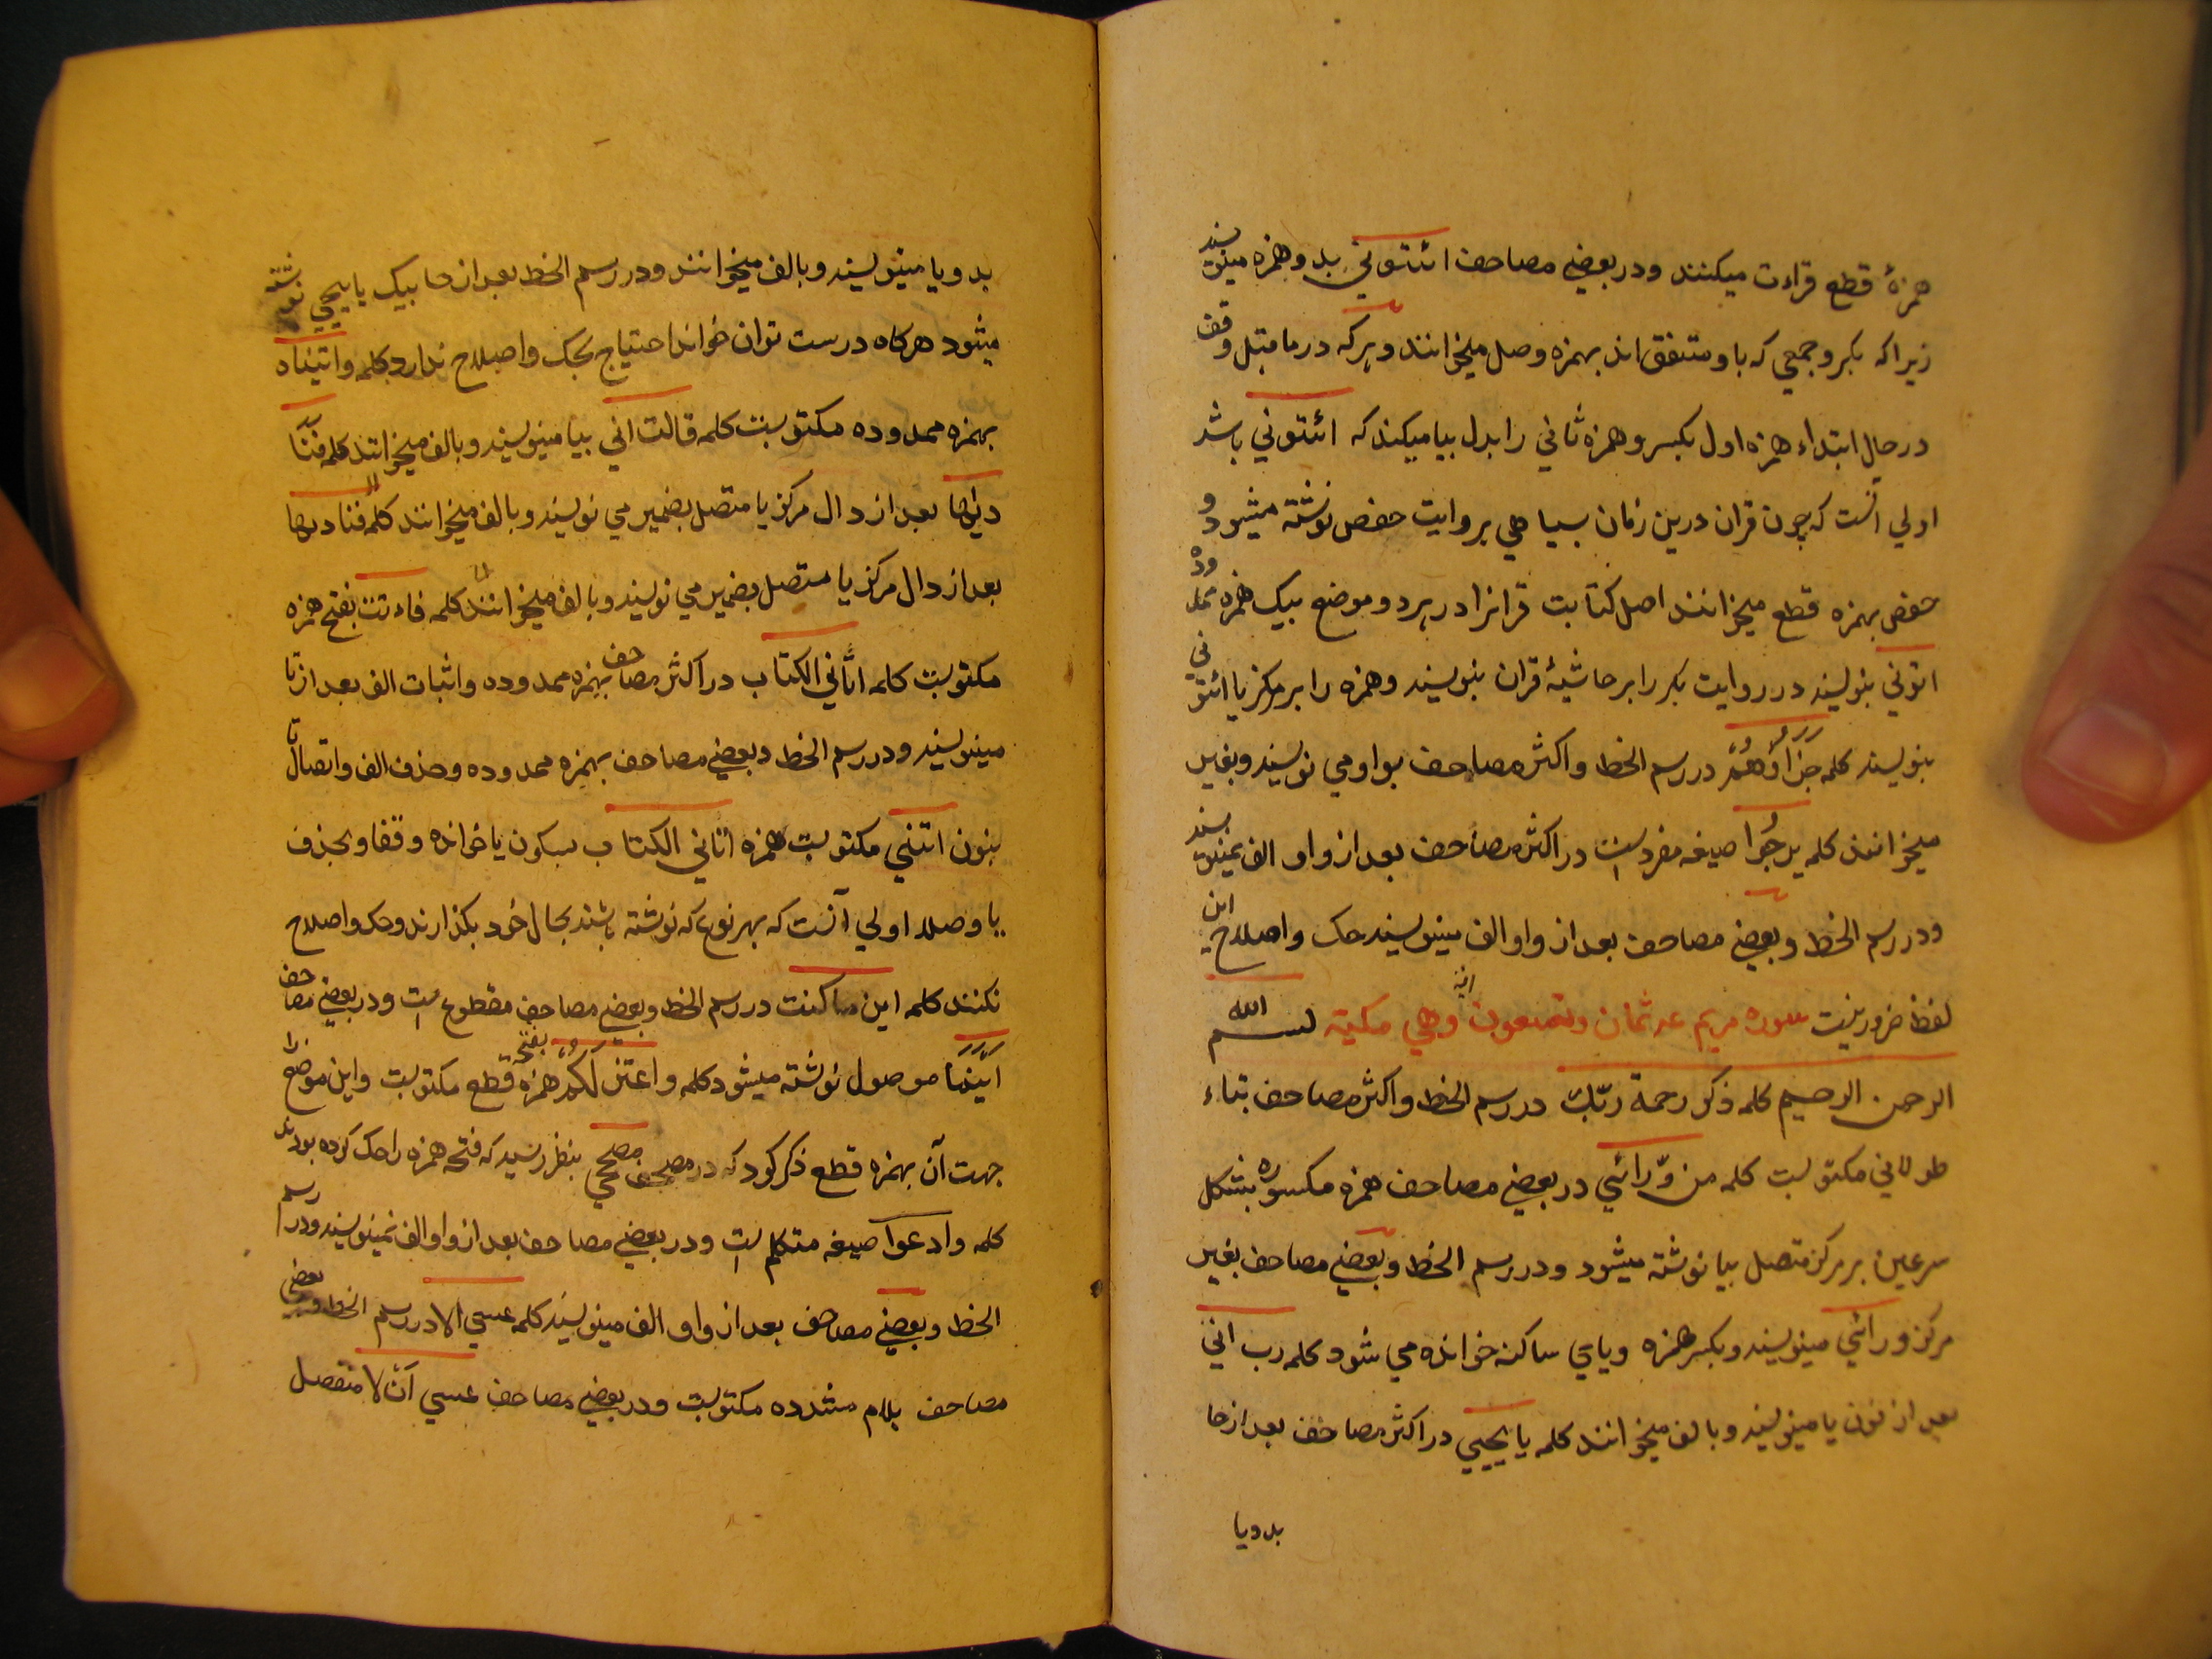 همزهٔ قطع قراءت میکنند ودر بعضی مصاحف ائتونی بد وهمزه مینویسند
زیراکه بکر وجمعی که با ومتفق اند بهمزه وصل میخوانند وهرکه در ماقبل وقف
در حال ابتداء همزه اول بکسر وهمزه ثانی را بدل بیا میکند که ائتونی باشد
اولی آنست که چون قران درین زمان بسیاهی بروایت حفص نوشته میشود و
حفص بهمزه قطع میخوانند اصل کتابت قرانرا در هر دو موضع بیک همزه ممدوده
اتونی بنویسند در روایت بکر را بر حاشیهٔ قران بنویسند وهمزه را بر مرکز یا ائتونی
بنویسند کلمه جَزَاؤُهُمْ در رسم الخط واکثر مصاحف بواو می نویسند وبغیر
میخوانند کلمه یرجُوا صیغه مفردست در اکثر مصاحف بعد از واو الف نمینویسند
ودر رسم الخط وبعضی مصاحف بعد از واو الف مینویسند حک واصلاح این
لفظ ضرور نیست سوره مریم عد ثمان وتسعون ایة وهی مکیة بسم الله
الرحمن الرحیم کلمه ذکر رحمة ربّک در رسم الخط واکثر مصاحف بتاء
طولانی مکتوبست کلمه من وّرائی در بعضی مصاحف همزه مکسوره بشکل
سرعین بر مرکز متصل بیا نوشته میشود ودر رسم الخط وبعضی مصاحف بغیر
مرکز ورائی مینویسند وبکسر همزه ویای ساکنه خوانده می شود کلمه رب انی
بعد از نون یا مینویسند وبالف میخوانند کلمه یا یحیی در اکثر مصاحف بعد از حا
بدویا
بدویا مینویسند وبالف میخوانند ودر رسم الخط بعد از حا بیک یا یحیی نوشته
میشود هرکاه درست توان خواند احتیاج بحک واصلاح ندارد کلمه واتیناه
بهمزه ممدوده مکتوبست کلمه قالت انی بیا مینویسند وبالف میخوانند کلمه
بعد از دال مرکز یا متصل بضمیر می نویسند وبالف میخوانند کلمه فنادیها
بعد از دال مرکز یا متصل بضمیر می نویسند وبالف میخوانند کلمه فاءتت بفتح همزه
مکتوبست کلمه اتانی الکتاب در اکثر مصاحف بهمزه ممدوده واثبات الف بعد از تا
مینویسند ودر رسم الخط وبعضی مصاحف بهمزه ممدوده وحذف الف واتصال تا
بنون اتنی مکتوبست همزه اتانی الکتاب بسکون یا خوانده وقفا وبحذف
یا وصلا اولی آنست که بهر نوع که نوشته باشند بحال خود بکذارند وحک واصلاح
نکنند کلمه این ما کنت در رسم الخط وبعضی مصاحف مقطوع است ودر بعضی مصاحف
اَیْنَمَا موصول نوشته میشود کلمه واعتزلکُم بفتح همزه قطع مکتوبست واین موضع را
جهت آن بهمزه قطع ذکر کرد که در مصحف مصححی بنظر رسید که فتحه همزه را حک کرده بودند
کلمه وادعوا صیغه متکلم است ودر بعضی مصاحف بعد از واو الف نمینویسند ودر رسم
الخط وبعضی مصاحف بعد از واو الف مینویسند کلمه عسی الا در رسم الخط وبعضی
مصاحف بلام مشدده مکتوبست ودر بعضی مصاحف عسی ان لا منفصل